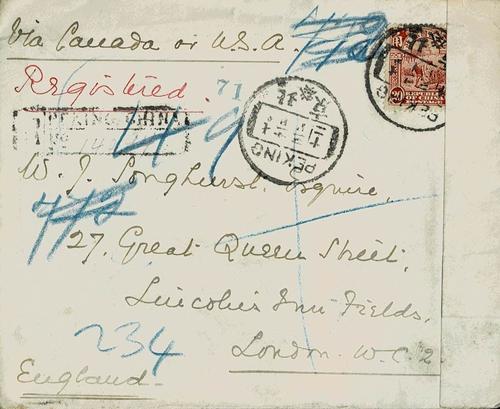 Via Canada or U.S.A.
Registered.
71
PEKING
49
W. J. Songhurst. Esquire,
27, Great Queen Street,
Lincoln's Inn Fields,
London. W.C. 2.
234
England.
20
REPUBLIC
OF CHINA
POSTAGE
PEKING